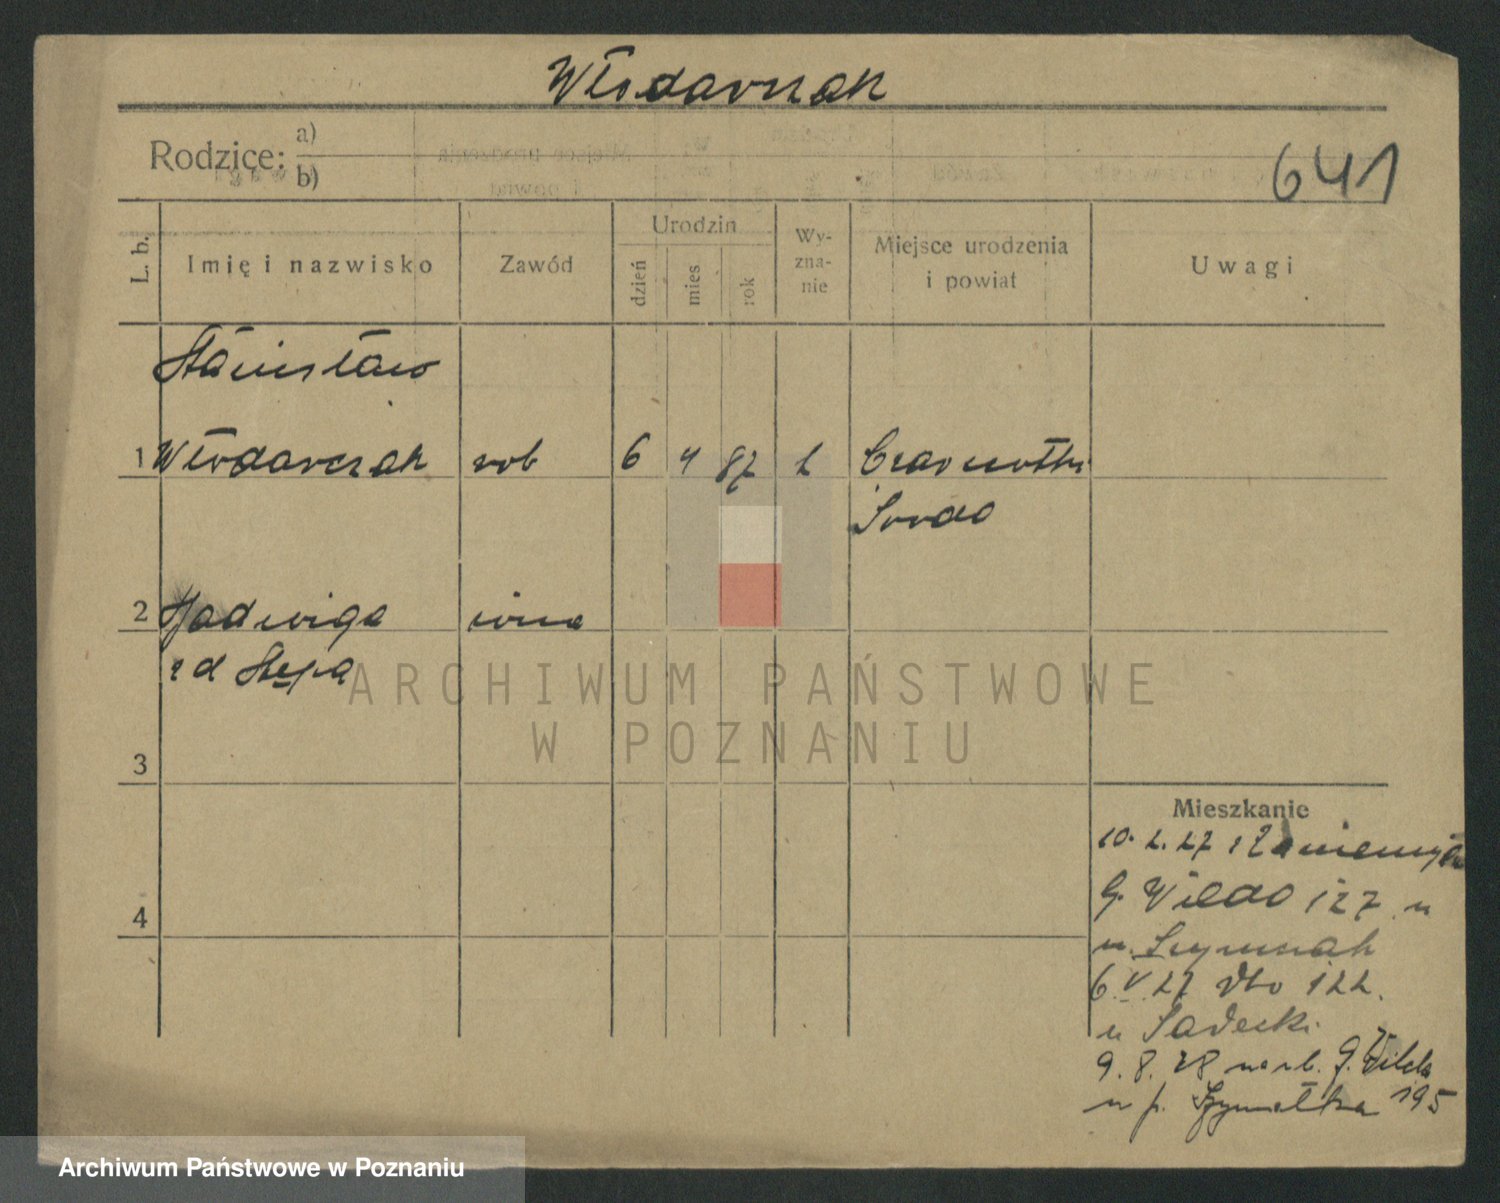 Włodarczak
Rodzice: a)
b)
641
L. b.
Imię i nazwisko
Zawód
Urodzin
dzień
mies
rok
Wy-
zna-
nie
Miejsce urodzenia
i powiat
Uwagi
Stanisław
1 Włodarczak rob 6 4 87 k Czarnotki
Środa
2 Jadwiga
zd
3
4
Mieszkanie
10. 2. 27 z Zaniemyśla
G. Wilda 127 u
u. Szymczak
6. V. 27 dto 122.
u Sadecki
9. 8. 28 G. Wilda
u p. 195
ARCHIWUM PAŃSTWOWE
W POZNANIU
Archiwum Państwowe w Poznaniu